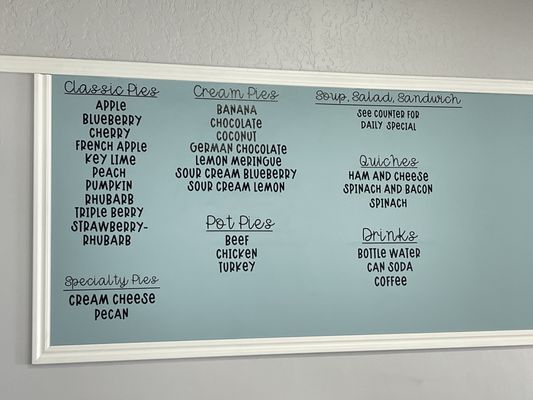 Classic Pies
APPLE
BLUEBERRY
CHERRY
FRENCH APPLE
KEY LIME
PEACH
PUMPKIN
RHUBARB
TRIPLE BERRY
STRAWBERRY-
RHUBARB
Specialty Pies
CREAM CHEESE
PECAN
Cream Pies
BANANA
CHOCOLATE
COCONUT
GERMAN CHOCOLATE
LEMON MERINGUE
SOUR CREAM BLUEBERRY
SOUR CREAM LEMON
Pot Pies
BEEF
CHICKEN
TURKEY
Soup, Salad, Sandwich
SEE COUNTER FOR
DAILY SPECIAL
Quiches
HAM AND CHEESE
SPINACH AND BACON
SPINACH
Drinks
BOTTLE WATER
CAN SODA
COFFEE